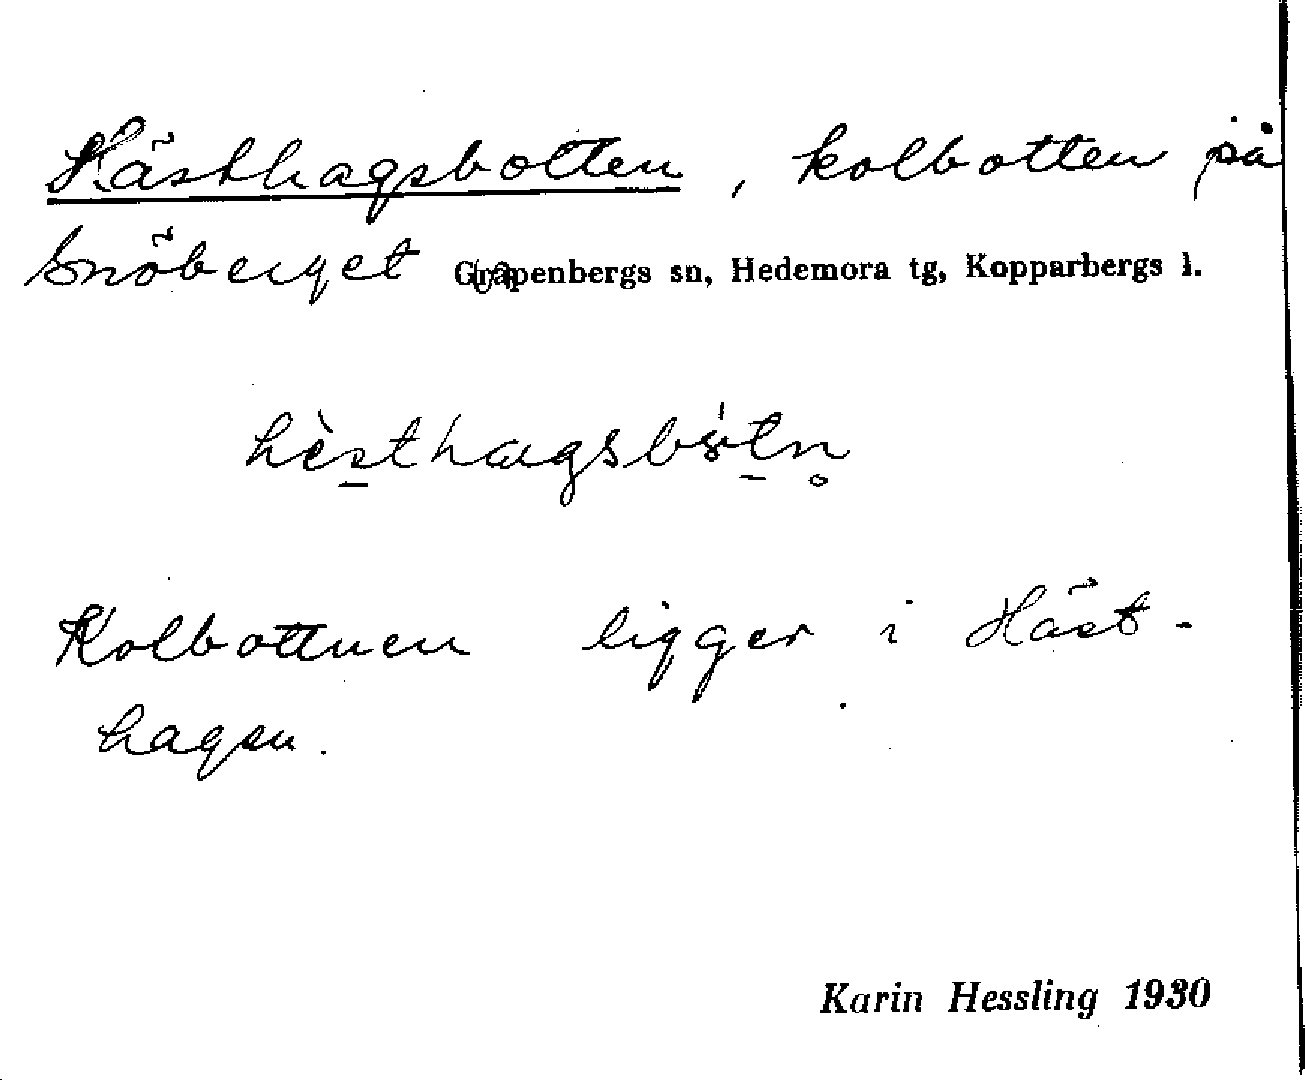 Hästhagsbotten, kolbotten på
Snöberget Garpenbergs sn, Hedemora tg, Kopparbergs l.
Kolbottnen ligger i Häst-
hagen.
Karin Hessling 1930